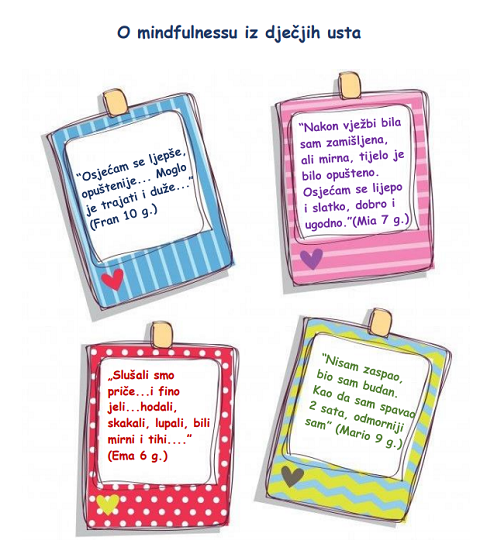 O mindfulnessu iz dječjih usta
“Osjećam se ljepše,
opuštenije... Moglo
je trajati i duže...”
(Fran 10 g.)
“Nakon vježbi bila
sam zamišljena,
ali mirna, tijelo je
bilo opušteno.
Osjećam se lijepo
i slatko, dobro i
ugodno.”(Mia 7 g.)
„Slušali smo
priče...i fino
jeli...hodali,
skakali, lupali, bili
mirni i tihi....”
(Ema 6 g.)
“Nisam zaspao,
bio sam budan.
Kao da sam spavao
2 sata, odmorniji
sam” (Mario 9 g.)